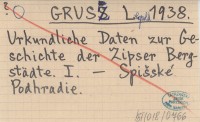 GRUSZ L 1938.
Urkundliche Daten zur Ge-
schichte der Zipser Berg-
städte. I. — Spišské
Podhradie.